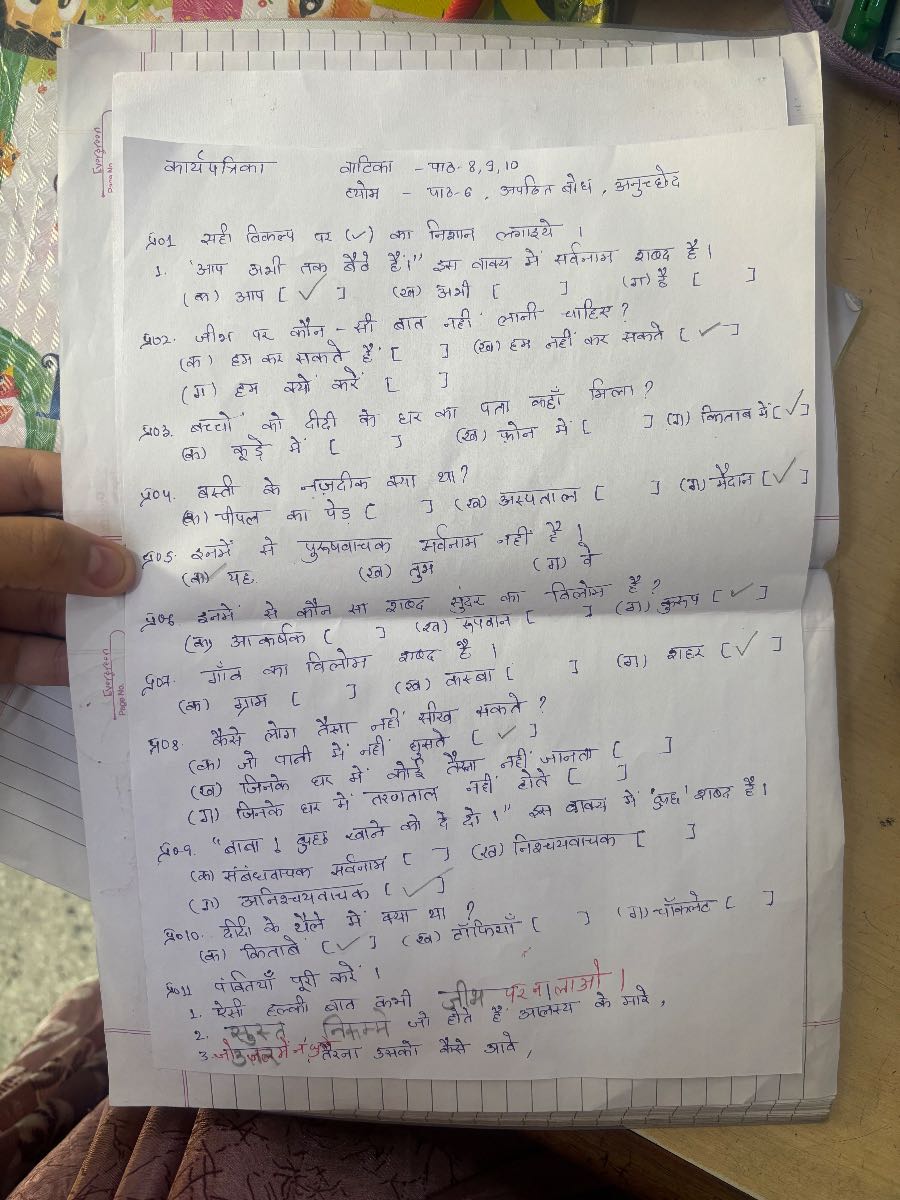 कार्यपत्रिका वाटिका - पाठ-8, 9, 10
व्योम - पाठ-6, अपठित बोध, अनुच्छेद
प्र०1 सही विकल्प पर (✓) का निशान लगाइये ।
1. "आप अभी तक बैठे हैं।" इस वाक्य में सर्वनाम शब्द है।
(क) आप [ ✓ ] (ख) अभी [ ] (ग) हैं [ ]
प्र०2. जीभ पर कौन-सी बात नहीं लानी चाहिए ?
(क) हम कर सकते हैं [ ] (ख) हम नहीं कर सकते [ ✓ ]
(ग) हम क्यों करें [ ]
प्र०3. बच्चों को दीदी के घर का पता कहाँ मिला ?
(क) कूड़े में [ ] (ख) फ़ोन में [ ] (ग) किताब में [ ✓ ]
प्र०4. बस्ती के नज़दीक क्या था ?
(क) पीपल का पेड़ [ ] (ख) अस्पताल [ ] (ग) मैदान [ ✓ ]
प्र०5. इनमें से पुरूषवाचक सर्वनाम नहीं है ।
(क) यह (ख) तुम (ग) वे
प्र०6 इनमें से कौन सा शब्द सुंदर का विलोम है ?
(क) आकर्षक [ ] (ख) रूपवान [ ] (ग) कुरूप [ ✓ ]
प्र०7. गाँव का विलोम शब्द है ।
(क) ग्राम [ ] (ख) कस्बा [ ] (ग) शहर [ ✓ ]
प्र०8. कैसे लोग तैरना नहीं सीख सकते ?
(क) जो पानी में नहीं घुसते [ ✓ ]
(ख) जिनके घर में कोई तैरना नहीं जानता [ ]
(ग) जिनके घर में तरणताल नहीं होते [ ]
प्र०9. "बाबा ! कुछ खाने को दे दो ।" इस वाक्य में 'कुछ' शब्द है।
(क) संबंधवाचक सर्वनाम [ ] (ख) निश्चयवाचक [ ]
(ग) अनिश्चयवाचक [ ✓ ]
प्र०10. दीदी के थैले में क्या था ?
(क) किताबें [ ✓ ] (ख) टॉफियाँ [ ] (ग) चॉकलेट [ ]
प्र०11 पंक्तियाँ पूरी करें ।
1. ऐसी हल्की बात कभी जीभ पर न लाओ ।
2. सुस्त निकम्मे जो होते हैं आलस्य के मारे ,
3. जो जल में न तैरना उसको कैसे आवे ,
Evergreen
Page No.
Evergreen
Page No.